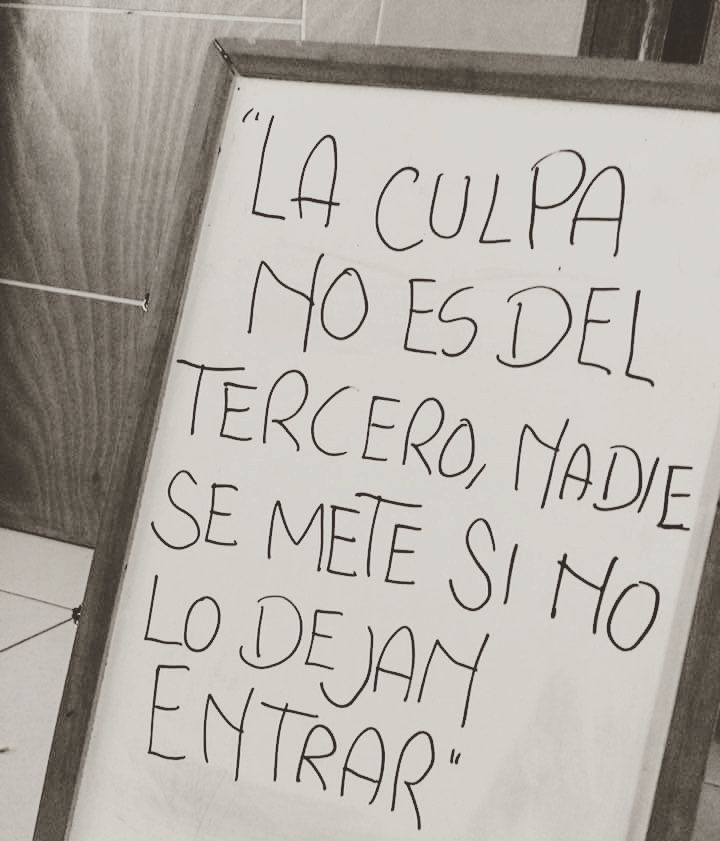 "LA CULPA
NO ES DEL
TERCERO, NADIE
SE METE SI NO
LO DEJAN
ENTRAR"